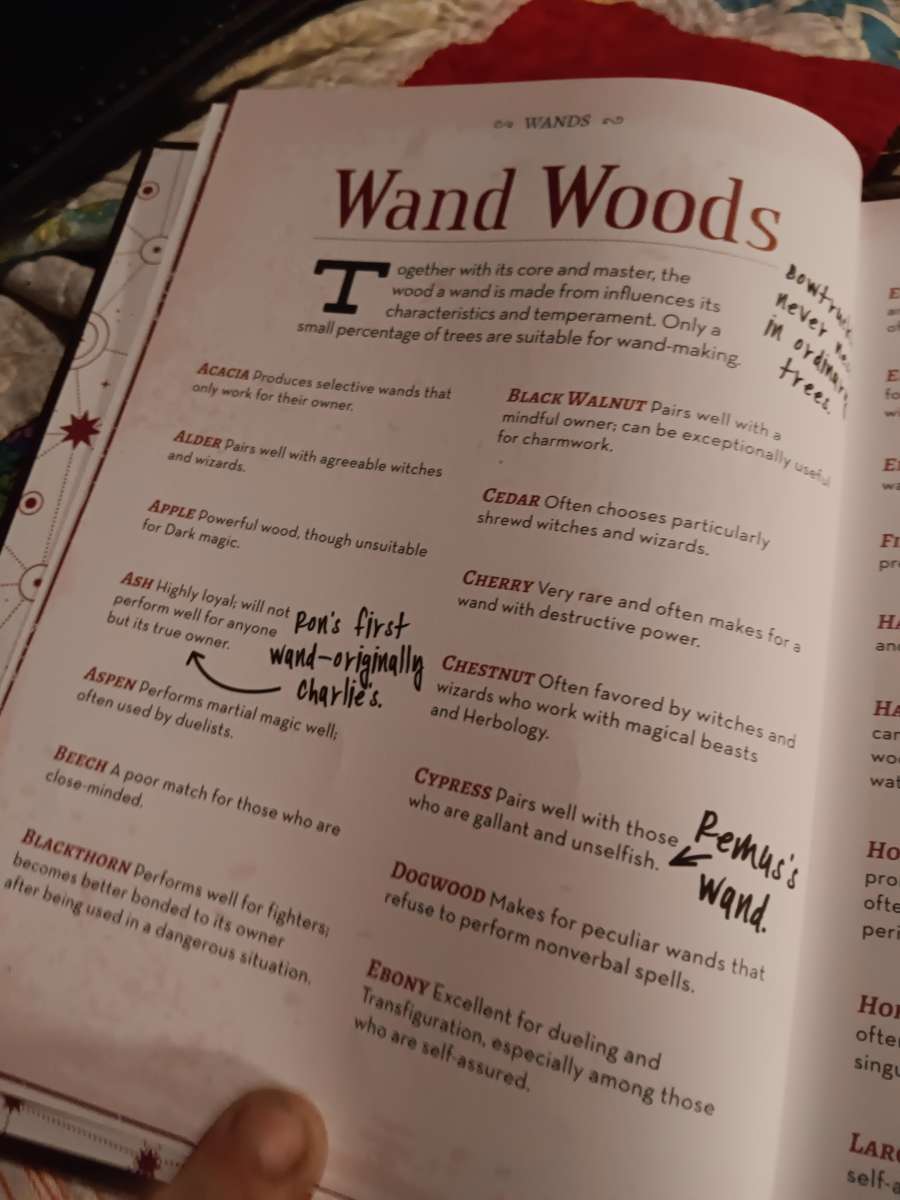 WANDS
Wand Woods
Together with its core and master, the
wood a wand is made from influences its
characteristics and temperament. Only a
small percentage of trees are suitable for wand-making.
never
in ordinary
trees.
ACACIA Produces selective wands that
only work for their owner.
ALDER Pairs well with agreeable witches
and wizards.
APPLE Powerful wood, though unsuitable
for Dark magic.
ASH Highly loyal; will not
perform well for anyone
but its true owner.
Ron's first
wand-originally
Charlie's.
ASPEN Performs martial magic well;
often used by duelists.
BEECH A poor match for those who are
close-minded.
BLACKTHORN Performs well for fighters;
becomes better bonded to its owner
after being used in a dangerous situation.
BLACK WALNUT Pairs well with a
mindful owner; can be exceptionally useful
for charmwork.
CEDAR Often chooses particularly
shrewd witches and wizards.
CHERRY Very rare and often makes for a
wand with destructive power.
CHESTNUT Often favored by witches and
wizards who work with magical beasts
and Herbology.
CYPRESS Pairs well with those
who are gallant and unselfish.
Remus's
wand.
DOGWOOD Makes for peculiar wands that
refuse to perform nonverbal spells.
EBONY Excellent for dueling and
Transfiguration, especially among those
who are self-assured.